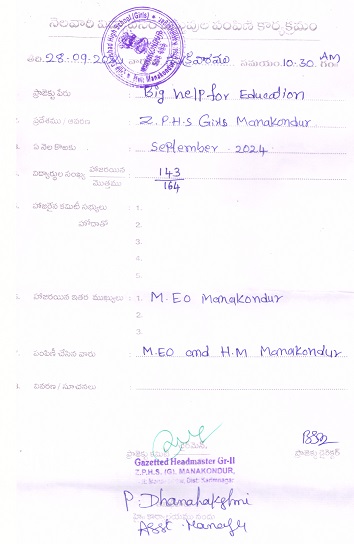 నెలవారి పంపిణీ కార్యక్రమం
తేది. 28.09.20 వారం సమయం. 10:30 గం AM
ప్రాజెక్టు పేరు : Big help for Education
ప్రదేశము / ఆవరణ : Z.P.H.S Girls Manakondur
ఏ నెల కొరకు : September 2024
విద్యార్థుల సంఖ్య హాజరయిన : 143
మొత్తము 164
హాజరైన కమిటీ సభ్యులు : 1.
హోదాతో 2.
3.
4.
5.
హాజరయిన ఇతర ముఖ్యులు : 1. M.EO Manakondur
2.
3.
పంపిణీ చేసిన వారు : M.EO and H.M Manakondur
వివరణ / సూచనలు :
ప్రాజెక్టు డైరెక్టర్
Gazetted Headmaster Gr-II
Z.P.H.S. (G), MANAKONDUR,
Dist: Karimnagar
P. Dhanalakshmi
Asst. Manager